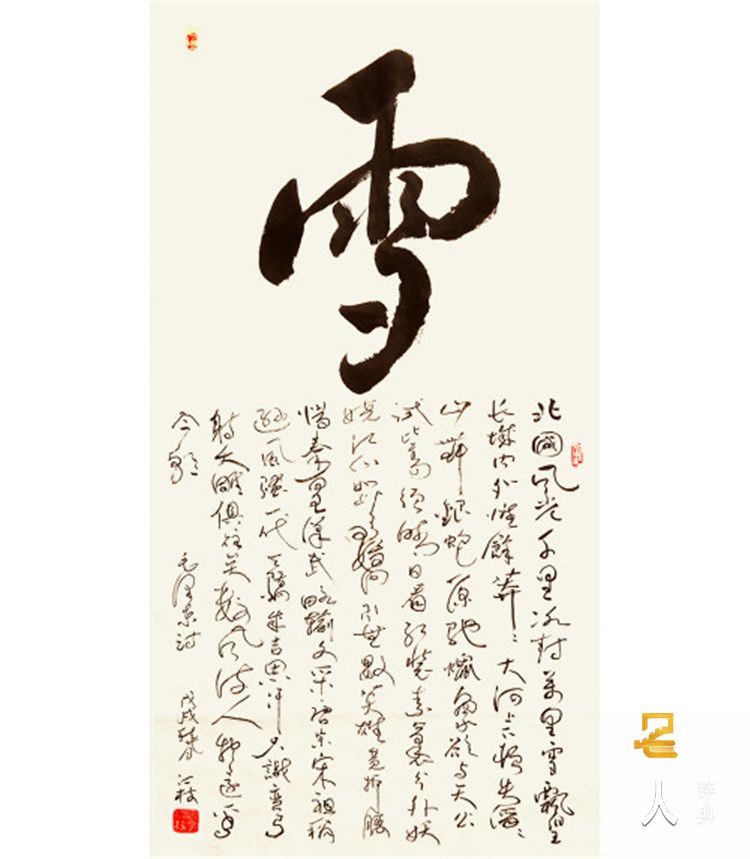 雪
北國風光千里冰封萬里雪飄望
长城内外惟餘莽〻大河上下頓失滔〻
山舞銀蛇原馳蠟象欲与天公
試比高須晴日看紅裝素裹分外妖
娆江山如此多嬌引無數英雄竞折腰
惜秦皇漢武略輸文采唐宗宋祖稍
遜風骚一代天驕成吉思汗只識彎弓
射大雕俱往矣數风流人物還看
今朝
毛泽东诗
戊戌
人
辞典